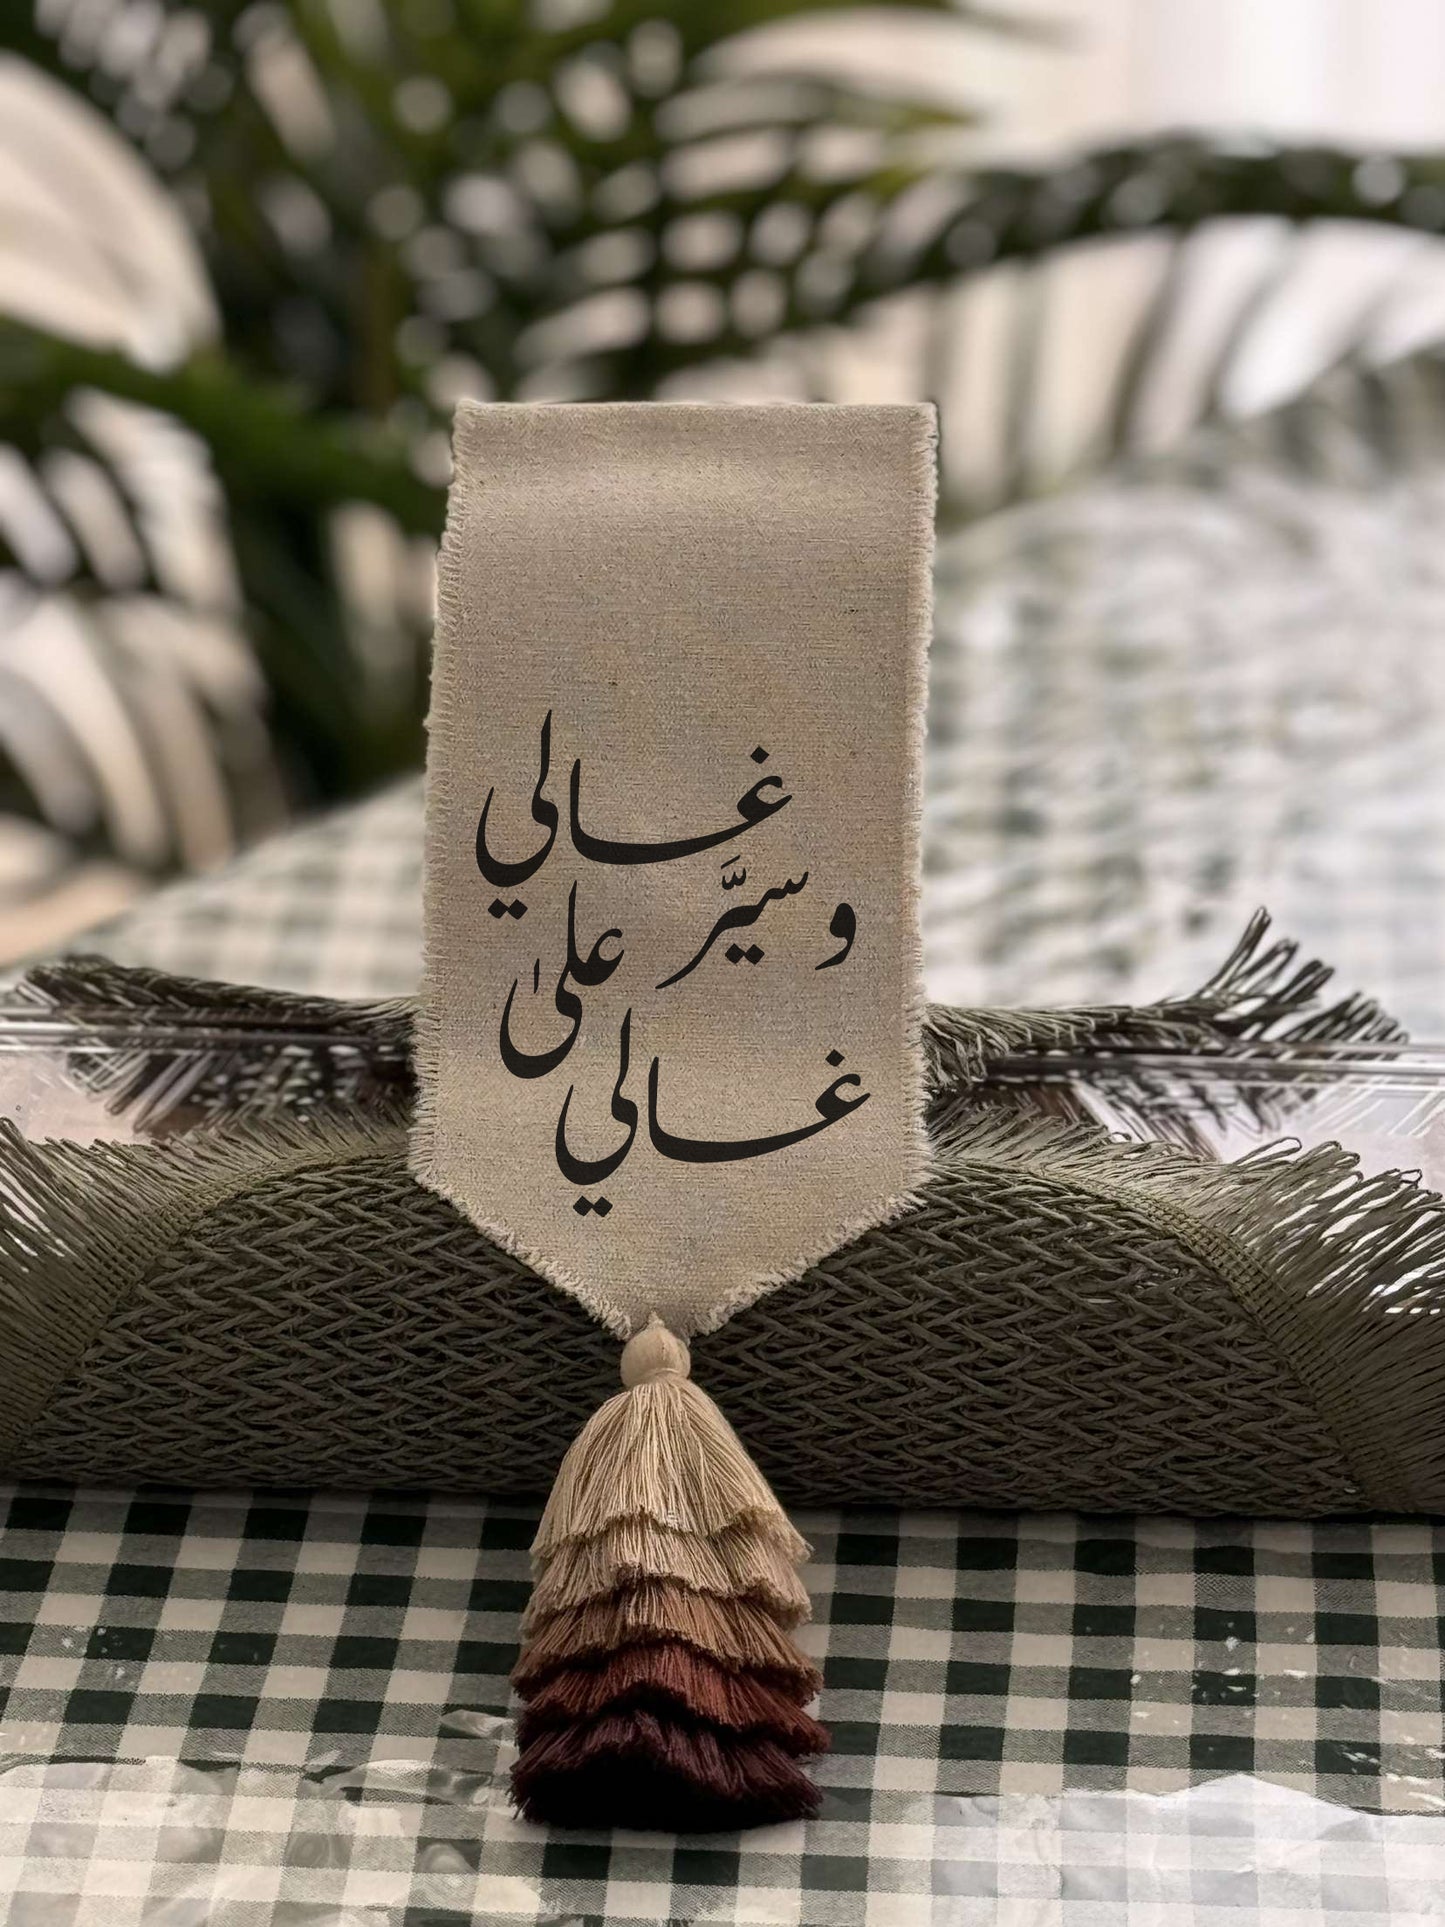 غالي
وسيَّر على
غالي